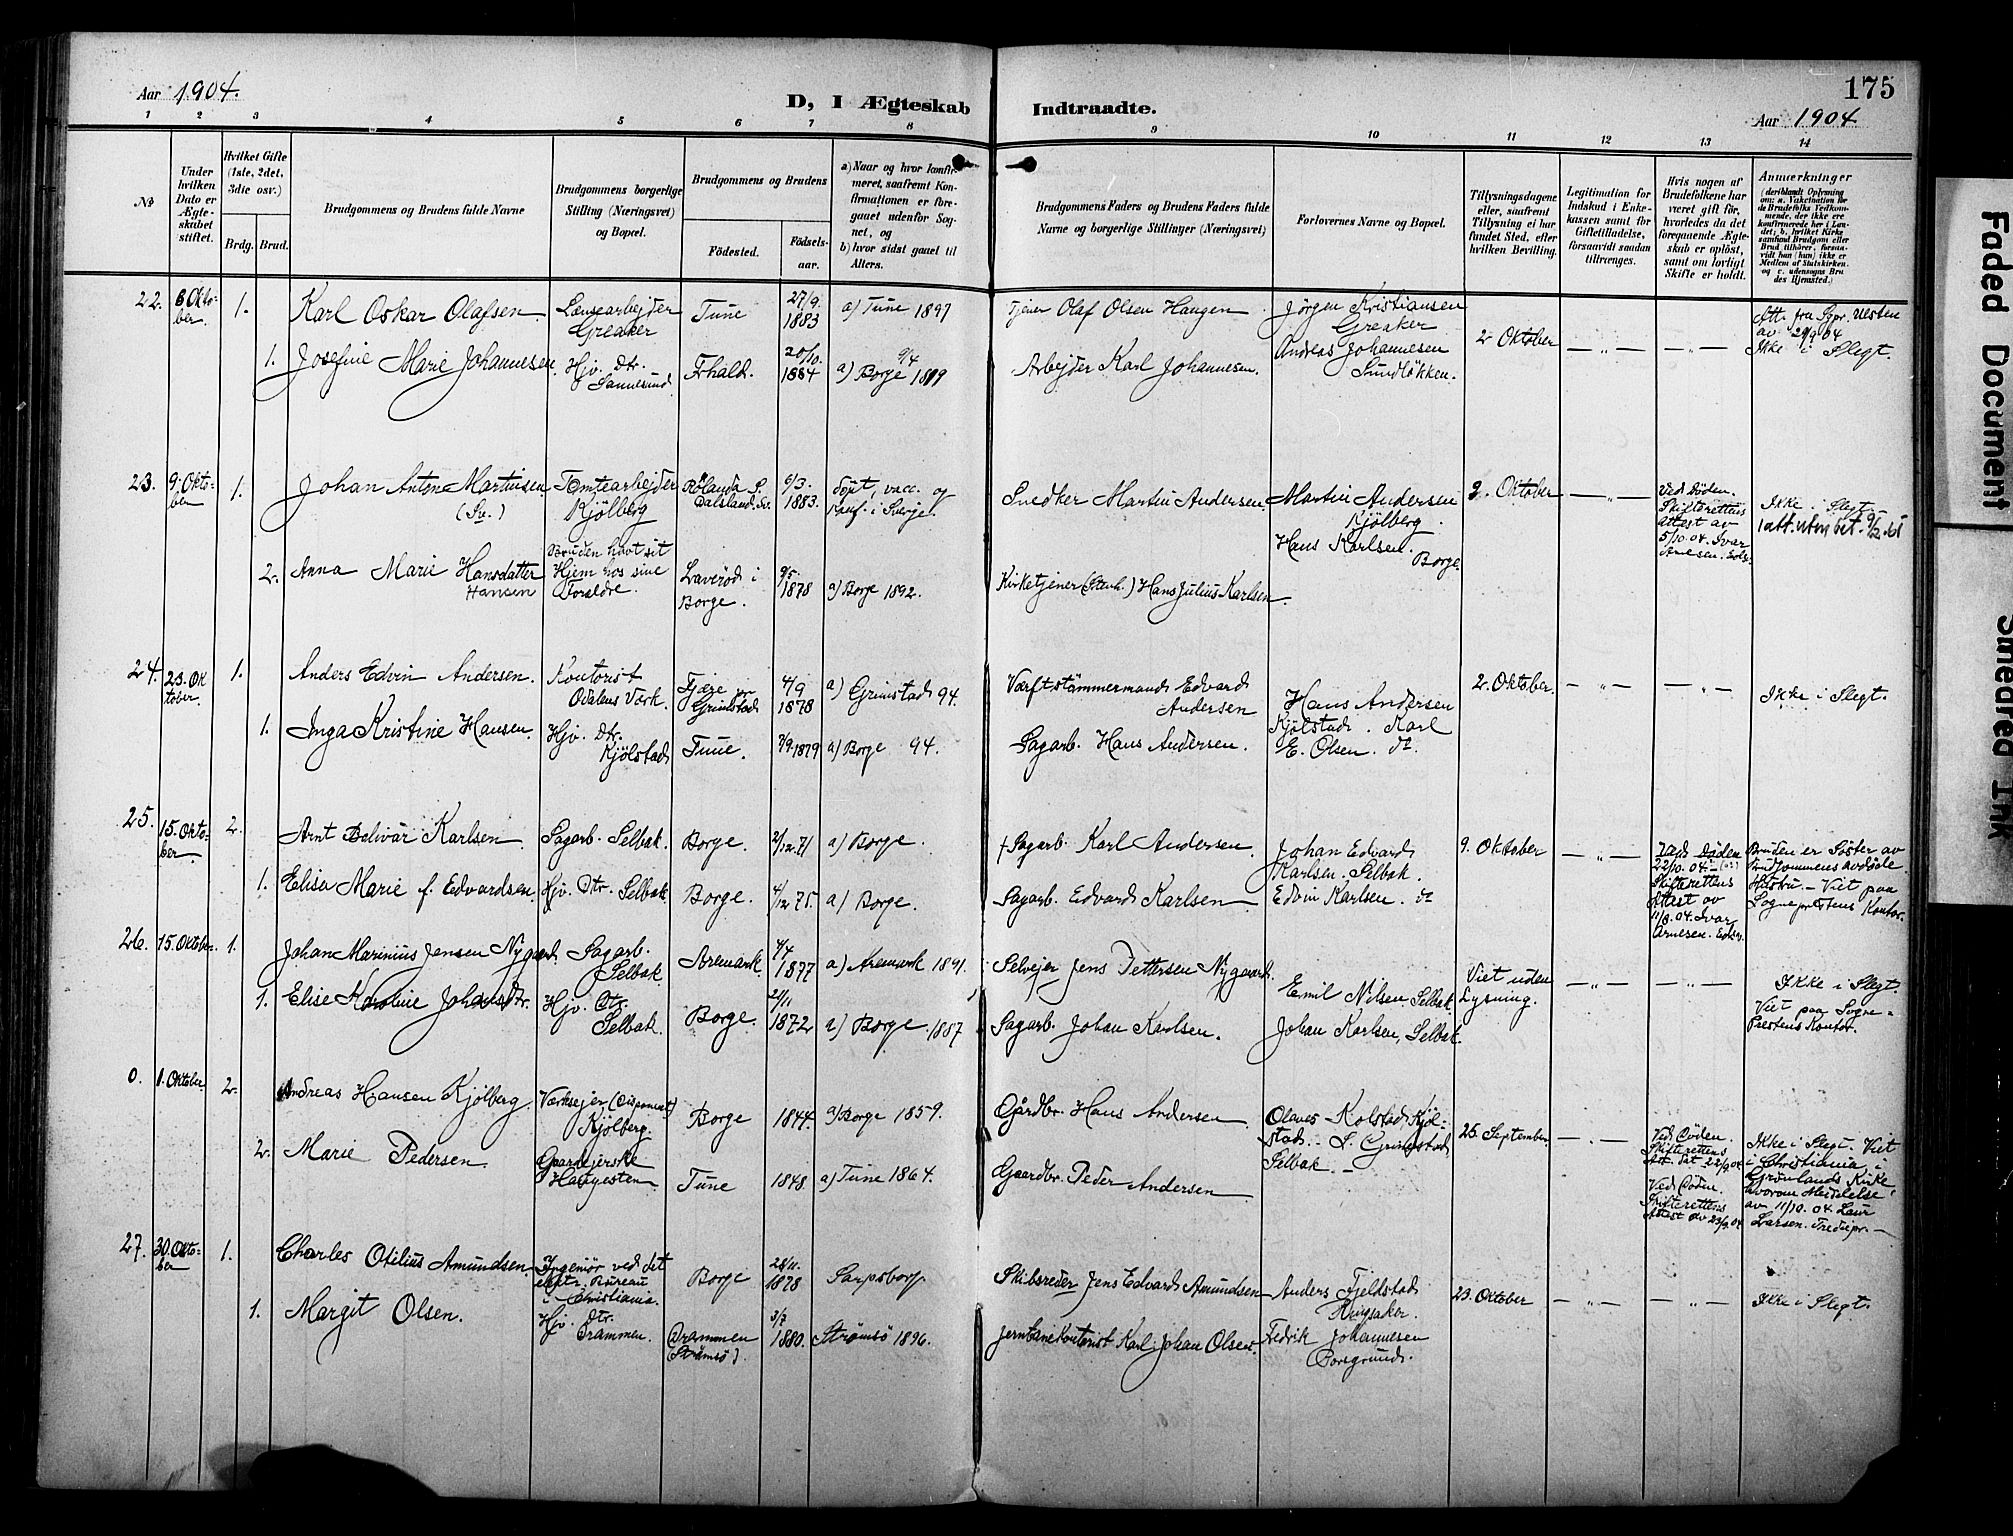 Aar 1904.
D, I Ægteskab Indtraadte.
175
Aar 1904
1 2 3 4 5 6 7 8 9 10 11 12 13 14
No
Under hvilken Dato er Ægteskabet stiftet.
Hvilket Gifte (1ste, 2det, 3die osv.)
Brdg. Brud.
Brudgommens og Brudens fulde Navne
Brudgommens borgerlige Stilling (Næringsvei) og Bopæl.
Brudgommens og Brudens
Fødested. Fødsels-aar.
a) Naar og hvor konfirmeret, saafremt Konfirmationen er foregaaet udenfor Sognet, og
b) hvor sidst gaaet til Alters.
Brudgommens Faders og Brudens Faders fulde Navne og borgerlige Stillinger (Næringsvei)
Forlovernes Navne og Bopæl.
Tillysningsdagene eller, saafremt Tillysning ei har fundet Sted, efter hvilken Bevilling.
Legitimation for Indskud i Enkekassen samt for Giftetilladelse, forsaavidt saadan tiltrænges.
Hvis nogen af Brudefolkene har været gift før, hvorledes da det foregaaende Ægteskab er opløst, samt om lovligt Skifte er holdt.
Anmærkninger
22. 8 Okto-ber. 1. Karl Oskar Olafsen. Lænsearbejder Greaker Tune 27/9. 1883 a) Tune 1897 Tjener Olaf Olsen Haugen Jörgen Kristiansen Greaker 2 Oktober — „ — — „ — Att. fra Sgpr. Uesten av 29/9 04 Ikke i Slegt.
1. Josefine Marie Johannesen Hjv. Dtr. Sannesund Frhald. 20/10. 1884 a) Borge 9/4 1899 Arbejder Karl Johannesen. Andreas Johannesen Sundløkken.
23. 9. Okto-ber 1. Johan Anton Martinsen (Sv.) Tomtearbejder Kjölberg Rölanda S. Dalsland. Sv. 6/3. 1883. Döpt, vacc. og Konf. i Sverige. Snedker Martin Andersen Martin Andersen Kjölberg. Hans Karlsen. Borge. 2. Oktober — „ — Ved Döden. Skifterettens attest av 5/10. 04. Ivar Arnesen. Ikke i Slegt.
2. Anna Marie Hansdatter Hansen Bruden havt sit Hjem hos sine Foreldre. Laveröd i Borge. 9/5. 1878 a) Borge 1892. Kirketjener (Stenh.) Hans Julius Karlsen
24. 23. Ok tober. 1. Anders Edvin Andersen. Kontorist Odalens Værk. Fjære pr Grimstad 4/9 1878 a) Grimstad 94. Værftstömmermand Edvard Andersen Hans Andersen Kjölstad. Karl E. Olsen. do 2. Oktober. — „ — — „ — Ikke i Slegt.
1. Inga Kristine Hansen. Hjv. Dtr. Kjölstad Tune. 7/9. 1879 a) Borge 94. Sagarb. Hans Andersen.
25. 15. Okto-ber 2. Arnt Bolivar Karlsen Sagarb. Selbak. Borge. 2/12. 71 a) Borge. † Sagarb. Karl Andersen. Johan Edvard Karlsen. Selbak. 9. Oktober — „ — Ved Döden 22/10. 04 Skifterettens Attest av 11/8. 04. Ivar Arnesen. Bruden er Söster av Brudgommens avdöde Hustru. — Viet paa Sogneprestens Kontor.
1. Elisa Marie f. Edvardsen Hjv. Dtr. Selbak Borge. 4/12 75 a) Borge. Sagarb. Edvard Karlsen Edvin Karlsen. do
26. 15. Oktober. 1. Johan Marinius Jensen Nygaard. Sagarb. Selbak Aremark 7/4 1877 a) Aremark 1891. Selvejer Jens Pettersen Nygaard. Emil Nilsen, Selbak Viet uden Lysning. — „ — — „ — Ikke i Slegt. Viet paa Sogne-Prestens Kontor.
1. Elise Karoline Johansdtr. Hjv. Dtr. Selbak. Borge. 21/11 1872 a) Borge. 1887 Sagarb. Johan Karlsen. Johan Karlsen, Selbak.
0. 1. Oktober 2. Andreas Hansen Kjölberg. Værksejer (Disponent) Kjölberg Borge 1844. a) Borge 1859. Gårdbr. Hans Andersen Olaves Kolstad, Kjöl-stad. S. Gringstad, Selbak. — 25. September. — „ — Ved Döden. Skifterettens Att. dat. 22/9 04 Ikke i Slegt. Viet i Christiania, i Grönlands Kirke hvorom Meddelelse av 11/10. 04 Laur Larsen.
2. Marie Pedersen. Gaardejerske Haugesten Tune 1848. a) Tune 1864. Gaardbr. Peder Andersen Ved Döden. Skifterettens Attest av 23/9. 04
27. 30. Okto-ber 1. Charles Otilius Amundsen. Ingeniör ved det elektr. Bureau i Christiania. Borge 28/11. 1878 Sarpsborg Skibsreder Jens Edvard Amundsen Anders Fjeldstad Ringsaker. 23. Oktober — „ — — „ — Ikke i Slegt.
1. Margit Olsen. Hjv. Dtr. Drammen. Drammen (Strömsö). 3/7 1880. Strömsö 1896. Jernbanekontorist Karl Johan Olsen. Fredrik Johannesen Porsgrund.
Faded Document
Smeared Ink